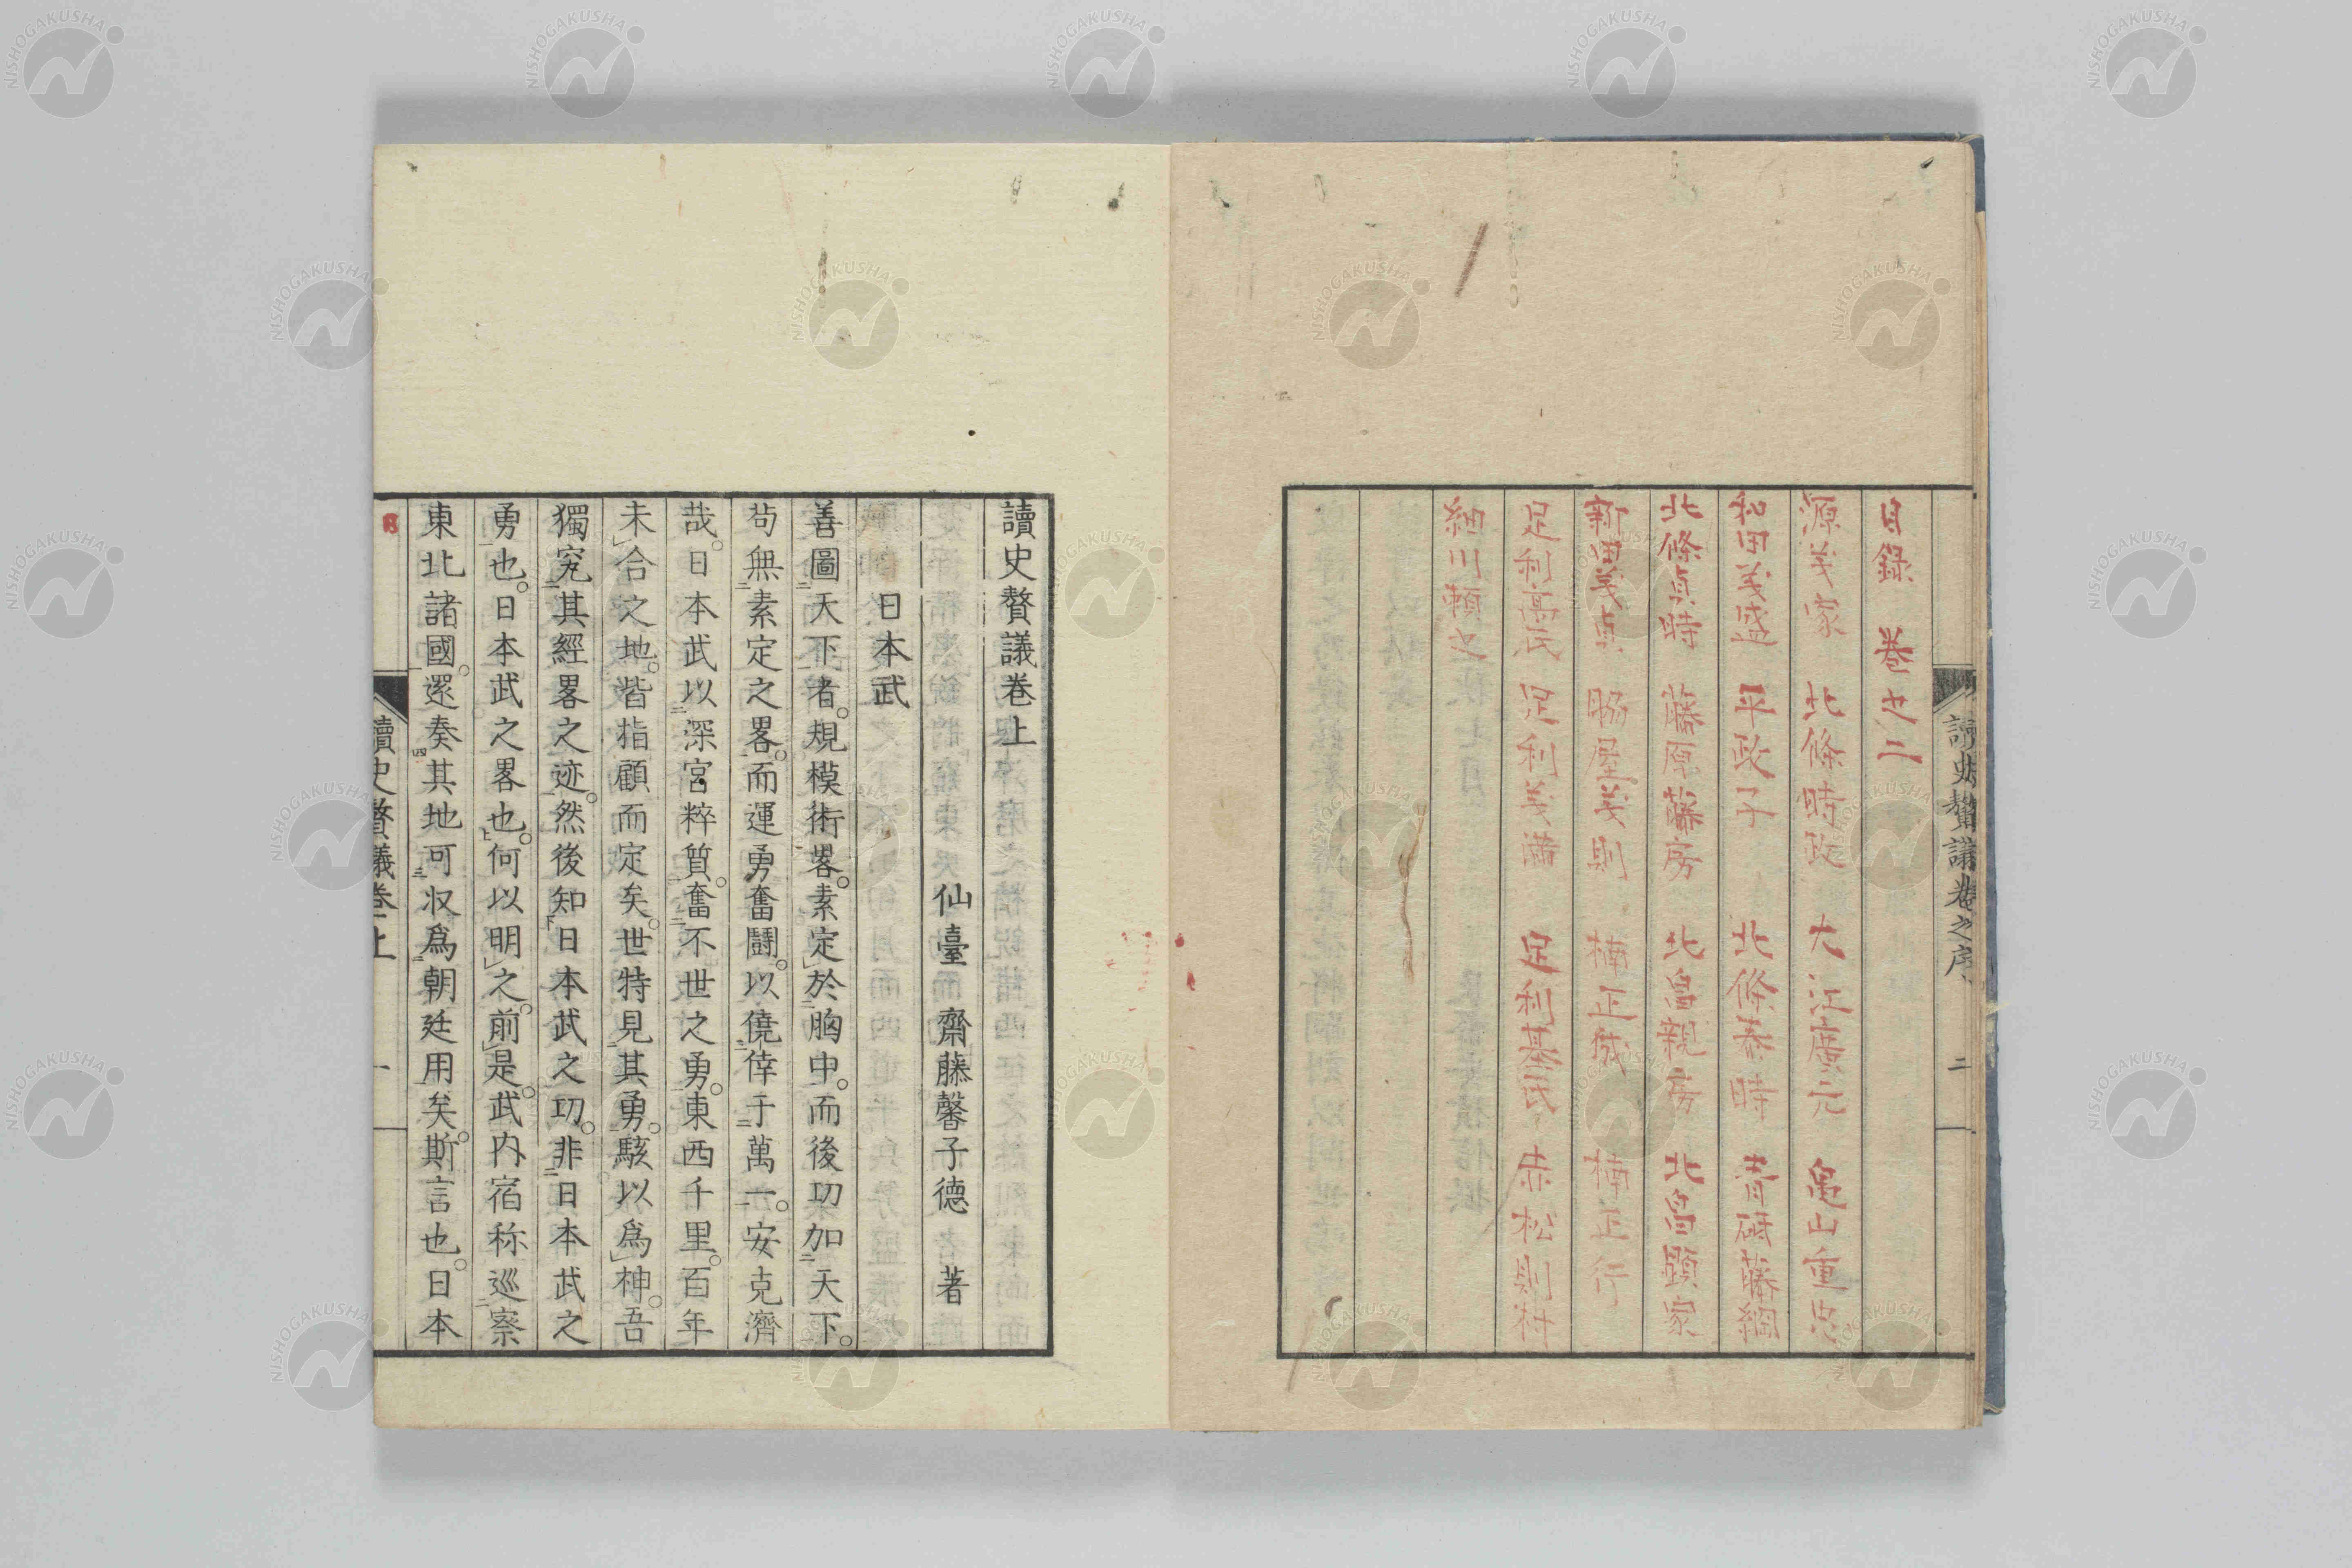 目錄　卷之二
源義家　北條時政　大江廣元　畠山重忠
和田義盛　平政子　北條泰時　青砥藤綱
北條貞時　藤原藤房　北畠親房　北畠顕家
新田義貞　脇屋義則　楠正成　楠正行
足利高氏　足利義満　足利基氏　赤松則村
細川頼之
讀史贅議卷之序
二
讀史贅議卷上
仙臺　齋藤馨子德　著
日本武
善圖天下者。規模術畧。素定於胸中。而後功加天下。
苟無素定之畧。而運勇奮鬪。以僥倖于萬一。安克濟
哉。日本武以深宮粹質。奮不世之勇。東西千里。百年
未合之地。皆指顧而定矣。世特見其勇。駭以爲神。吾
獨究其經畧之迹。然後知日本武之功。非日本武之
勇也。日本武之畧也。何以明之。前是。武内宿称巡察
東北諸國。還奏其地可収爲朝廷用矣。斯言也。日本
讀史贅議卷上
一
NISHOGAKUSHA